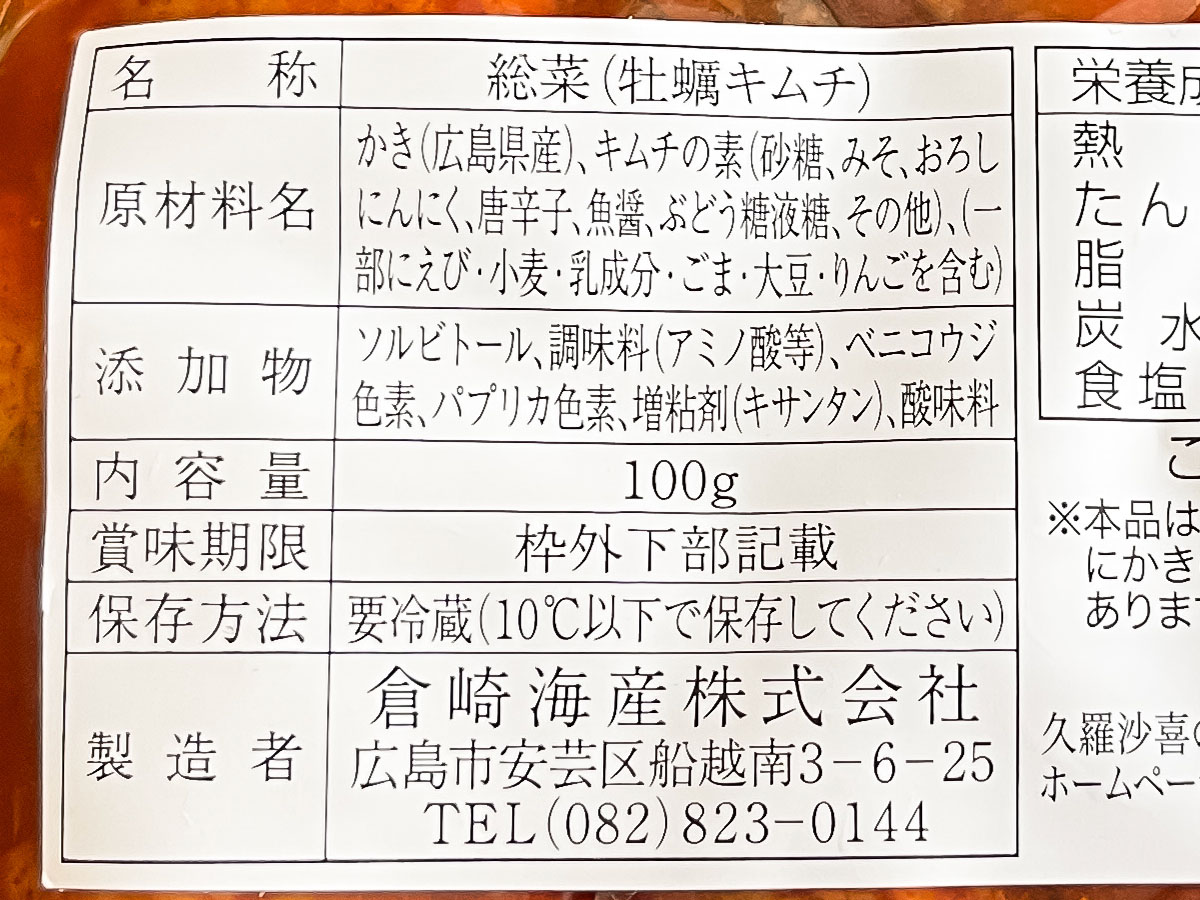 名称 総菜(牡蠣キムチ)
原材料名 かき(広島県産)、キムチの素(砂糖、みそ、おろし
にんにく、唐辛子、魚醤、ぶどう糖液糖、その他)、(一
部にえび・小麦・乳成分・ごま・大豆・りんごを含む)
添加物 ソルビトール、調味料(アミノ酸等)、ベニコウジ
色素、パプリカ色素、増粘剤(キサンタン)、酸味料
内容量 100g
賞味期限 枠外下部記載
保存方法 要冷蔵(10℃以下で保存してください)
製造者 倉崎海産株式会社
広島市安芸区船越南3-6-25
TEL(082)823-0144
栄養成
熱
たん
脂
炭水
食塩
こ
※本品は
にかき
あります
久羅沙喜
ホームペー